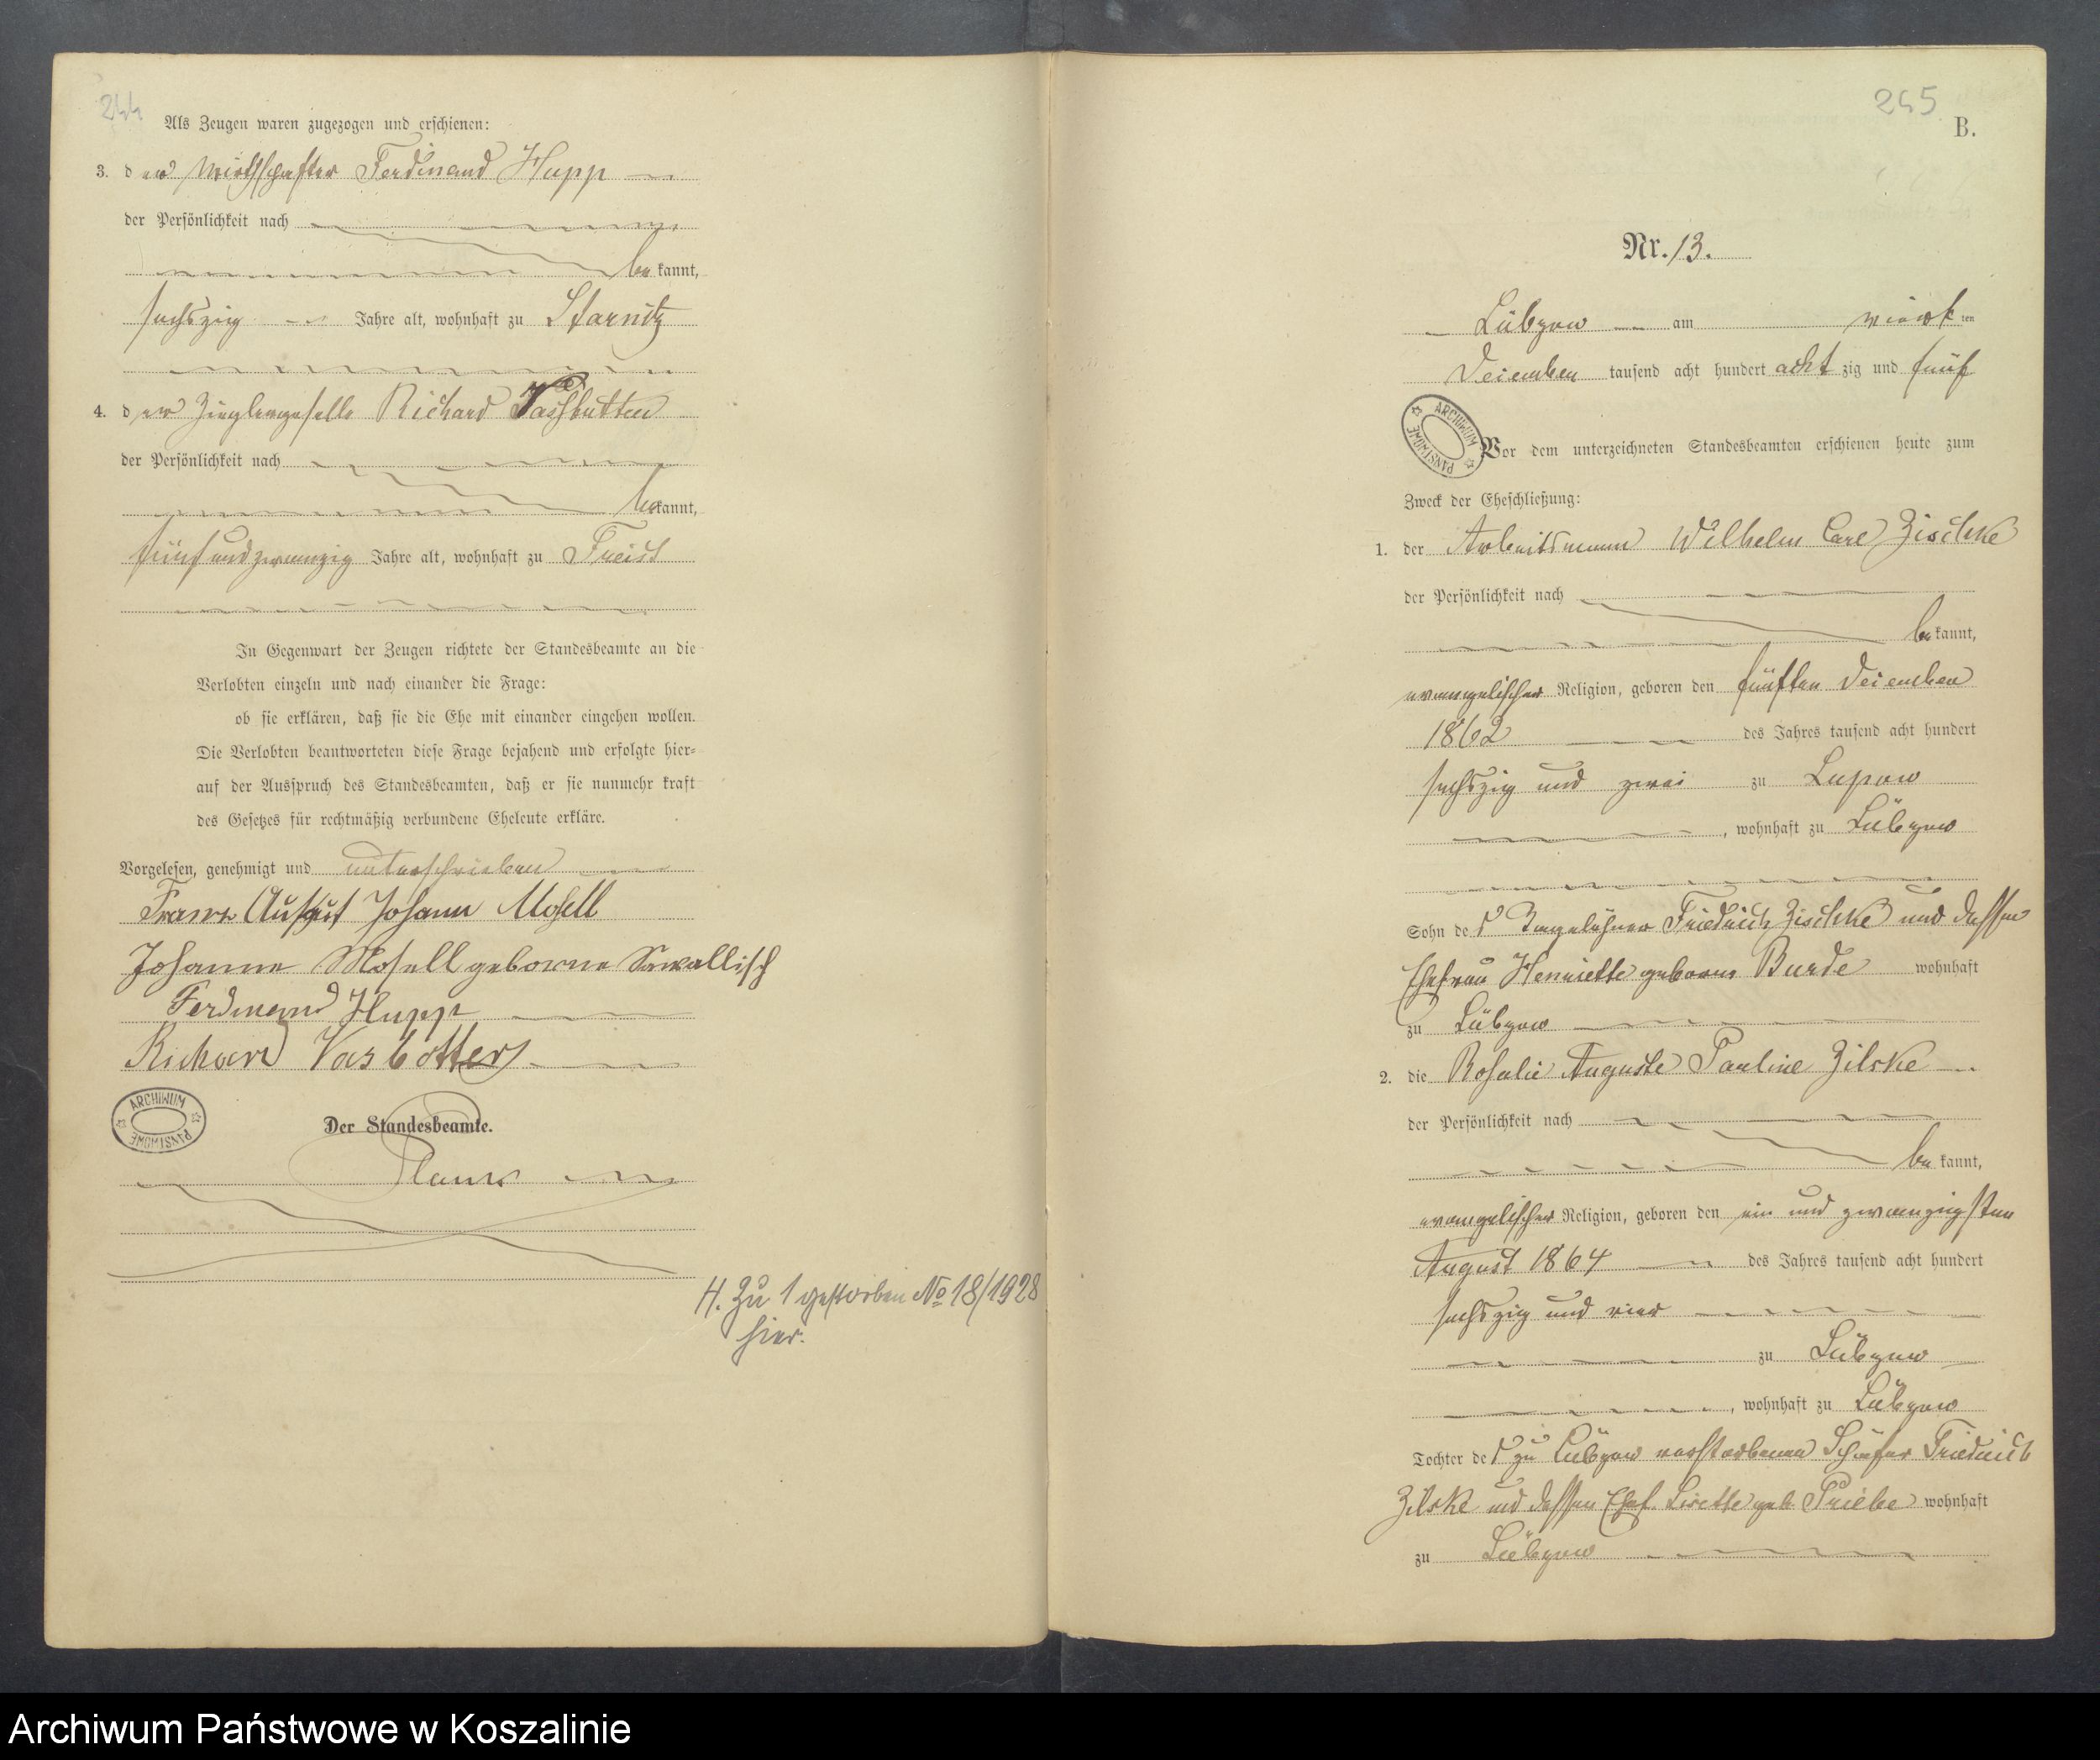 244
Als Zeugen waren zugezogen und erschienen:
3. der Wirthschafter Ferdinand Hupp
der Persönlichkeit nach
be kannt,
sechszig Jahre alt, wohnhaft zu Starnitz
4. der Zieglergeselle Richard
der Persönlichkeit nach
be kannt,
fünf und zwanzig Jahre alt, wohnhaft zu Freist
In Gegenwart der Zeugen richtete der Standesbeamte an die
Verlobten einzeln und nach einander die Frage:
ob sie erklären, daß sie die Ehe mit einander eingehen wollen.
Die Verlobten beantworteten diese Frage bejahend und erfolgte hier-
auf der Ausspruch des Standesbeamten, daß er sie nunmehr kraft
des Gesetzes für rechtmäßig verbundene Eheleute erkläre.
Vorgelesen, genehmigt und unterschrieben
August Johann Mosell
Johanne Mosell geborne
Ferdinand Hupp
Richard Vasbotter
ARCHIWUM PAŃSTWOWE
Der Standesbeamte.
H. Zu 1 gestorben No 18/1928
hier.
245
B.
Nr. 13.
Lübzow am vierten
Dezember tausend acht hundert achtzig und fünf
ARCHIWUM PAŃSTWOWE
Vor dem unterzeichneten Standesbeamten erschienen heute zum
Zweck der Eheschließung:
1. der Arbeitsmann Wilhelm Carl Zischke
der Persönlichkeit nach
be kannt,
evangelischer Religion, geboren den fünften Dezember
1862 des Jahres tausend acht hundert
sechszig und zwei zu Lupow
, wohnhaft zu Lübzow
Sohn des Tagelöhner Friedrich Zischke und dessen
Ehefrau Henriette geborne Burde wohnhaft
zu Lübzow
2. die Rosalie Auguste Pauline Zilske
der Persönlichkeit nach
be kannt,
evangelischer Religion, geboren den ein und zwanzigsten
August 1864 des Jahres tausend acht hundert
sechszig und vier
zu Lübzow
, wohnhaft zu Lübzow
Tochter des zu Lübzow verstorbenen Schäfer Friedrich
Zilske und dessen Ehef. Lisette geb. Priebe wohnhaft
zu Lübzow
Archiwum Państwowe w Koszalinie